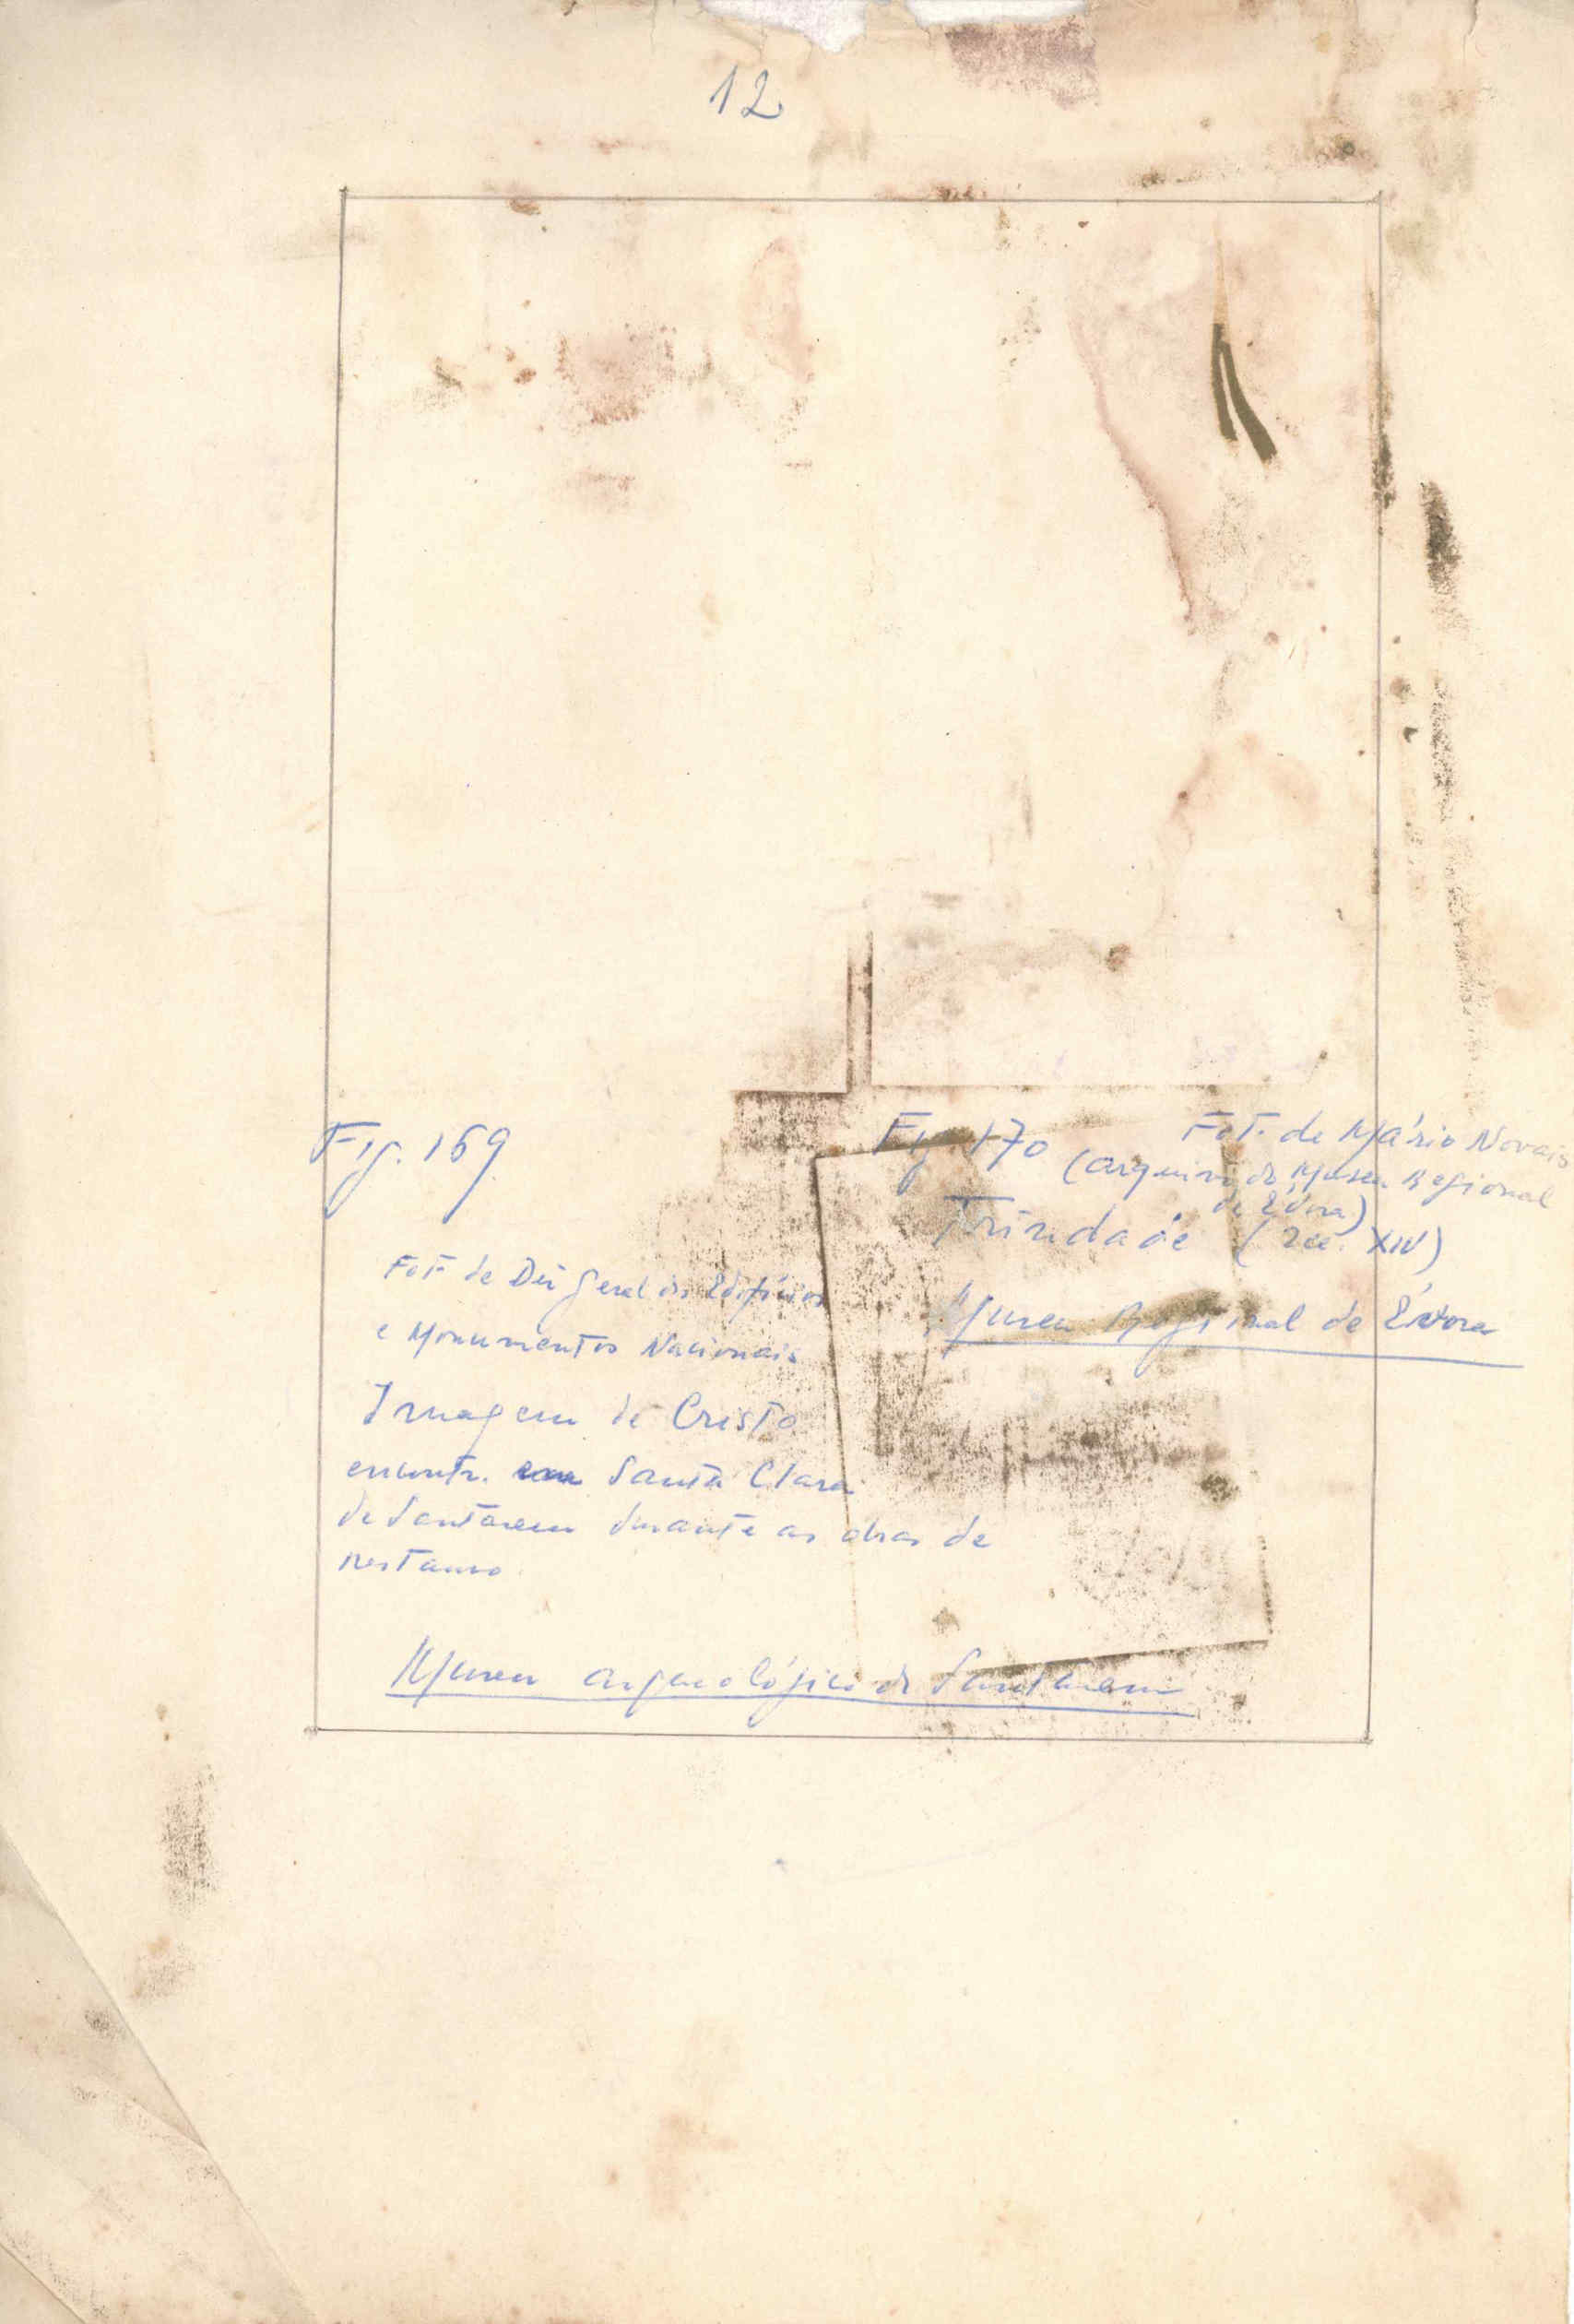 12
Fig. 169
Fot. de Dir Geral dos Edifícios
e Monumentos Nacionais
Imagem de Cristo
encontr. em Santa Clara
de Santarem durante as obras de
restauro
Museu arqueológico de Santarem
Fig. 170
Fot. de Mário Novais
(arquivo do Museu Regional
de Évora)
Trindade (Sec. XIV)
Museu Regional de Évora